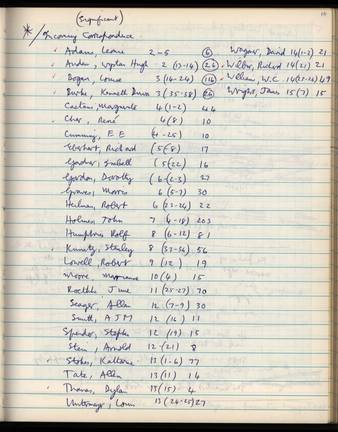 (Significant)
* / Incoming Correspondence
Adams, Léonie 2-5 (6) Wagoner, David 14(1-2) 21
Auden, Wystan Hugh 2 (13-14) (26) Wilbur, Richard 14(21) 21
Bogan, Louise 3 (14-24) (116) Williams, W.C. 14(23-26) 49
Burke, Kenneth Duva 3 (35-38) (26) Wright, James 15(7) 15
Caetani, Marguerite 4 (1-2) 44
Char, René 4 (8) 10
Cumming, E E (4-25) 10
Eberhart, Richard (5-8) 17
Gardner, Isabella (5(22) 16
Gordon, Dorothy (6-(2-3) 27
Graves, Morris 6 (5-7) 30
Heilman, Robert 6 (23-24) 22
Holmes John 7 (-18) 203
Humphries Rolfe 8 (6-12) 81
Kunitz, Stanley 8 (33-36) 56
Lowell, Robert 9 (12) 19
Moore Marianne 10(4) 15
Roethke June 11 (25-27) 70
Seager, Allan 12 (7-9) 30
Smith, A J M 12 (16) 11
Spender, Stephen 12 (19) 15
Stein, Arnold 12 (21) 8
Stokes, Katherine 13 (1-6) 77
Tate, Allen 13(11) 14
Thomas, Dylan 13(15) 4
Untermeyer, Louis 13(24-25) 27